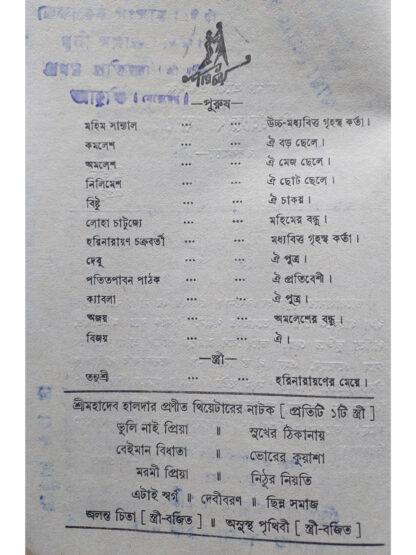 পরিচয়
—পুরুষ—
মহিম সান্যাল ... ... উচ্চ-মধ্যবিত্ত গৃহস্থ কর্তা।
কমলেশ ... ... ঐ বড় ছেলে।
অমলেশ ... ... ঐ মেজ ছেলে।
নিলিমেশ ... ... ঐ ছোট ছেলে।
বিষ্টু ... ... ঐ চাকর।
লোহা চাটুজ্যে ... ... মহিমের বন্ধু।
হরিনারায়ণ চক্রবর্তী ... ... মধ্যবিত্ত গৃহস্থ কর্তা।
দেবু ... ... ঐ পুত্র।
পতিতপাবন পাঠক ... ... ঐ প্রতিবেশী।
ক্যাবলা ... ... ঐ পুত্র।
অজয় ... ... অমলেশের বন্ধু।
বিজয় ... ... ঐ।
—স্ত্রী—
তনুশ্রী ... ... হরিনারায়ণের মেয়ে।
শ্রীমহাদেব হালদার প্রণীত থিয়েটারের নাটক [ প্রতিটি ১টি স্ত্রী ]
ভুলি নাই প্রিয়া ॥ সুখের ঠিকানায়
বেইমান বিধাতা ॥ ভোরের কুয়াশা
মরমী প্রিয়া ॥ নিঠুর নিয়তি
এটাই স্বর্গ ॥ দেবীবরণ ॥ ছিন্ন সমাজ
জলন্ত চিতা [ স্ত্রী-বর্জিত ] ॥ অসুস্থ পৃথিবী [ স্ত্রী-বর্জিত ]